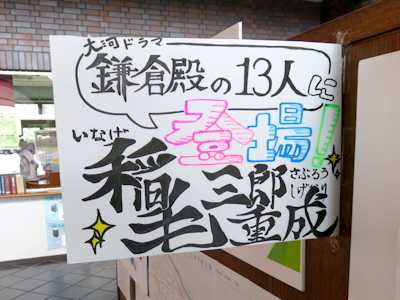 大河ドラマ
鎌倉殿の13人に
登場!
いなげ
稲毛三郎重成
さぶろう
しげなり